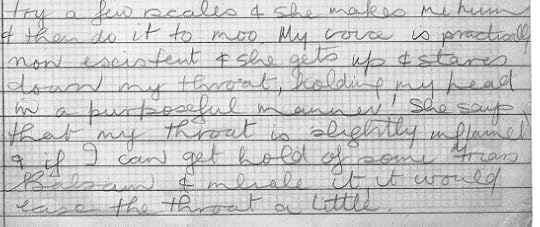 try a few scales & she makes me hum
& then do it to moo. My voice is practically
non existent & she gets up & stares
down my throat, holding my head
in a purposeful manner! She says
that my throat is slightly inflamed
& if I can get hold of some Friars
Balsam & inhale it it would
ease the throat a little.